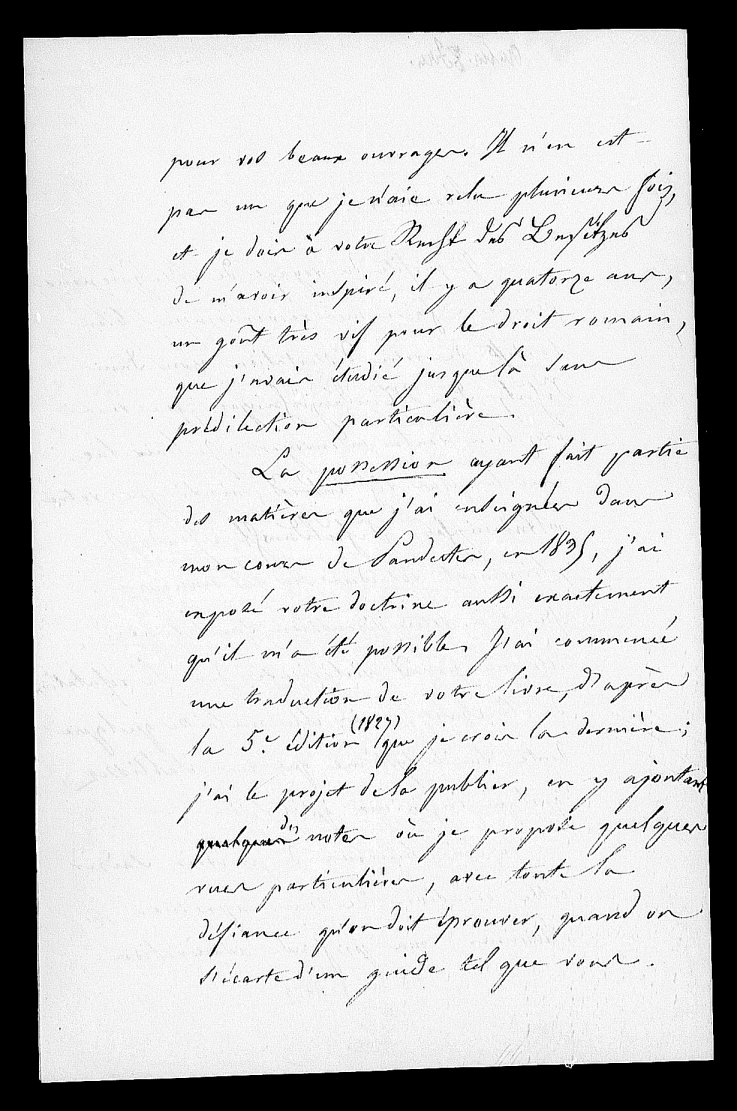 pour vos beaux ouvrages. Il n'en est
pas un que je n'aie relu plusieurs fois,
et je dois à votre Recht des Besitzes
de m'avoir inspiré, il y a quatorze ans,
un goût très vif pour le droit romain,
que j'avais étudié jusque là sans
prédilection particulière.
La possession ayant fait partie
des matières que j'ai enseignées dans
mon cours de Pandectes, en 1835, j'ai
exposé votre doctrine aussi exactement
qu'il m'a été possible. J'ai commencé
une traduction de votre livre, d'après
la 5.e édition (1827) que je crois la dernière ;
j'ai le projet de la publier, en y ajoutant
quelques des notes où je propose quelques
vues particulières, avec toute la
défiance qu'on doit éprouver, quand on
s'écarte d'un guide tel que vous.